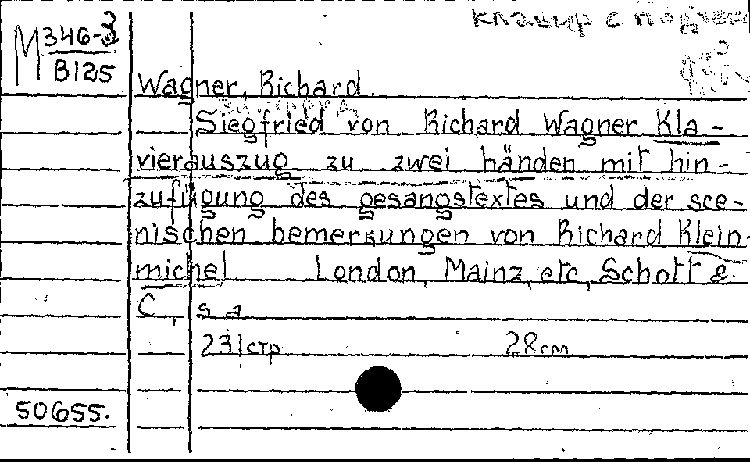 клавир с
M 346-3
B125
Wagner, Richard
Siegfried von Richard Wagner Kla-
vierauszug zu zwei händen mit hin-
zufügung des gesangstextes und der sce-
nischen bemerkungen von Richard Klein-
michel London, Mainz, etc, Schott &
C, s a
231 стр 28 cm
50655.